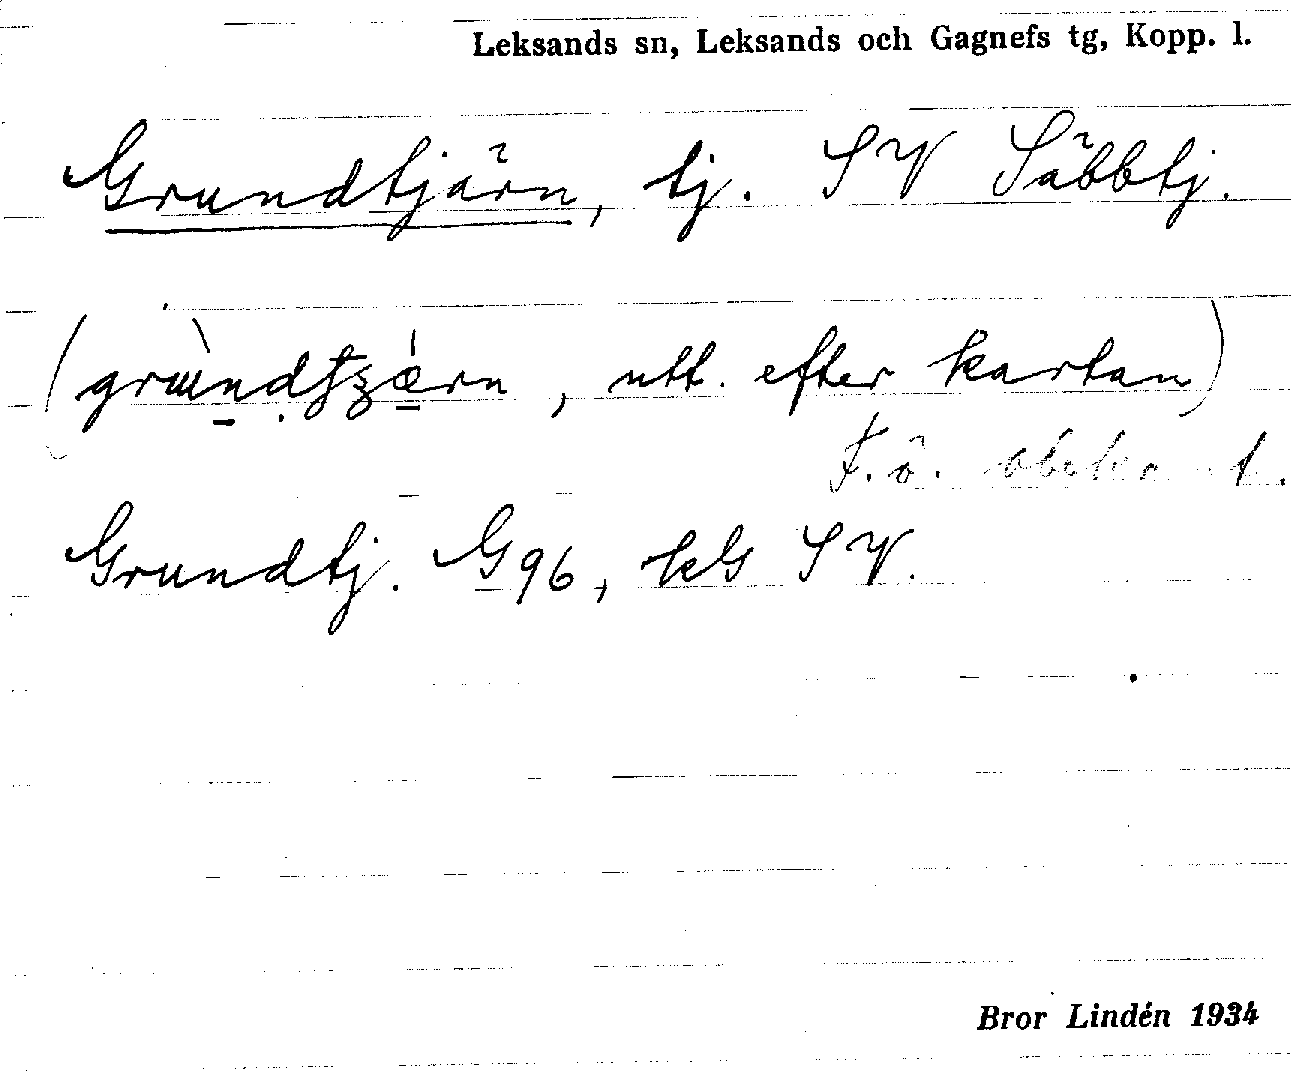 Leksands sn, Leksands och Gagnefs tg, Kopp. l.
Grundtjärn, tj. SV Säbbtj.
(grùndtʒǽrn, utt. efter kartan)
F. ö. obekant.
Grundtj. G96, kG SV.
Bror Lindén 1934